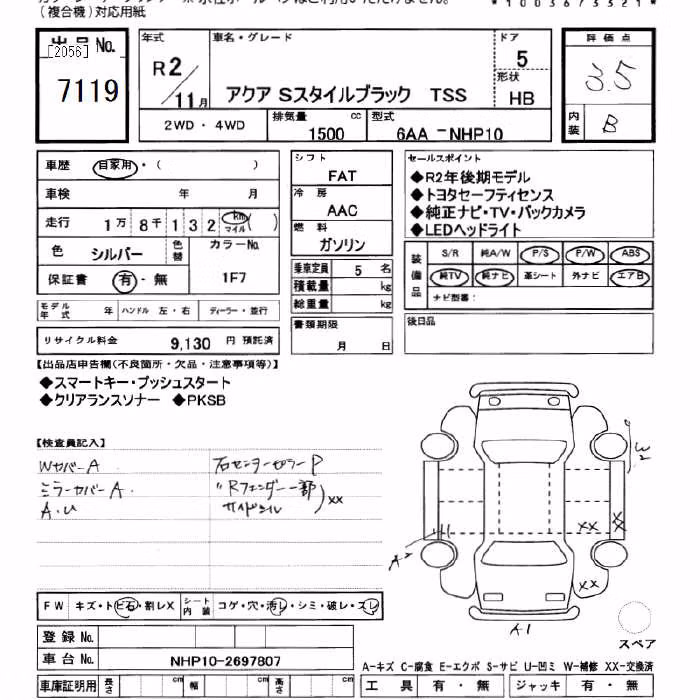 (複合機)対応用紙
*1003673321*
出品No.
[2056]
7119
年式
R2/11月
車名・グレード
アクア Sスタイルブラック TSS
ドア
5
形状
HB
評価点
3.5
内装
B
2WD・4WD
排気量
1500
cc
型式
6AA-NHP10
車歴
自家用・( )
車検
年 月
走行
1万8千132
km
マイル
( )
色
シルバー
色替
カラーNo.
1F7
保証書
有・無
モデル年式
年
ハンドル 左・右
ディーラー・並行
リサイクル料金
9,130
円 預託済
シフト
FAT
冷房
AAC
燃料
ガソリン
乗車定員 5 名
積載量 kg
総重量 kg
書類期限
月 日
セールスポイント
◆R2年後期モデル
◆トヨタセーフティセンス
◆純正ナビ・TV・バックカメラ
◆LEDヘッドライト
装備品
S/R 純A/W P/S P/W ABS
純TV 純ナビ 革シート 外ナビ エアB
ナビ型番:
後日品
【出品店申告欄(不良箇所・欠品・注意事項等)】
◆スマートキー・プッシュスタート
◆クリアランスソナー ◆PKSB
【検査員記入】
WカバーA
ミラーカバーA.
A.U
右センターピラーP
〃Rフェンダー一部
サイドシル
XX
W2
XX
XX
XX
A2
A1
スペア
FW キズ・トビ石・割レX
シート内装
コゲ・穴・汚レ・シミ・破レ・スレ
登録No.
車台No.
NHP10-2697807
車庫証明用
長さ cm 幅 cm 高さ cm
A-キズ C-腐食 E-エクボ S-サビ U-凹ミ W-補修 XX-交換済
工具 有・無
ジャッキ 有・無